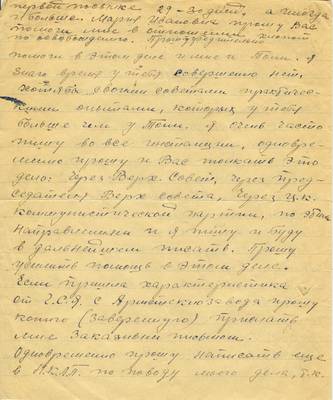 первой посылке 29-30 дней, а иногда
и больше. Мария Ивановна прошу Вас
помочь мне в отношении хлопот
по освобождению.
помочь в этом деле и мне и Толи. Я
знаю время у тебя совершенно нет,
хотя бы своими советами практичес-
кими опытами, которых у тебя
больше чем у Толи. Я очень часто
пишу во все инстанции, одновре-
менно прошу и Вас толкать это
дело: Через Верх. Совет, через пред-
седателя Верх совета, через Ц.К.
коммунистической партии, по этим
направлениям и я пишу и буду
в дальнейшем писать. Прошу
усилить помощь в этом деле.
Если пришла характеристика
от Г.С.Я. с завода прошу
копию (заверенную) прислать
мне заказным письмом.
Одновременно прошу написать еще
в по поводу моего дела, т.к.